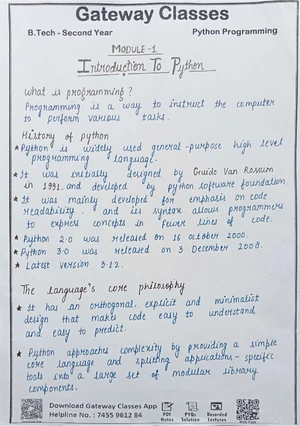 Gateway Classes
B.Tech - Second Year Python Programming
MODULE-1
Introduction To Python
What is programming?
Programming is a way to instruct the computer
to perform various tasks.
History of python
* Python is widely used general-purpose high level
programming language.
* It was initially designed by Guido Van Rossum
in 1991 and developed by python software foundation
* It was mainly developed for emphasis on code
readability, and its syntax allows programmers
to express concepts in fewer lines of code.
* Python 2.0 was released on 16 october 2000.
* Python 3.0 was released on 3 December 2008.
* Latest version 3.12.
The language's core philosophy
* It has an orthogonal, explicit and minimalist
design that makes code easy to understand
and easy to predict.
* Python approaches complexity by providing a simple
core language and splitting applications-specific
tools into a large set of modular library
components.
Download Gateway Classes App
Helpline No. : 7455 9612 84
PDF
Notes
PYQs
Solution
Recorded
Lectures